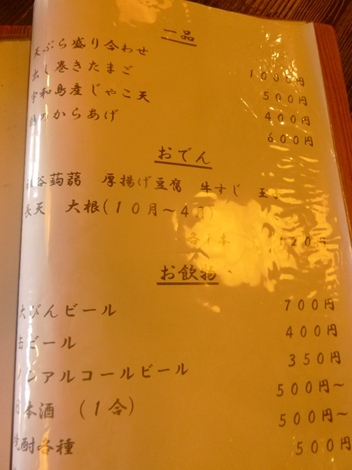 一品
天ぷら盛り合わせ 1000円
出し巻きたまご 500円
宇和島産じゃこ天 400円
からあげ 600円
おでん
蒟蒻 厚揚げ豆腐 牛すじ
天 大根(10月~4月)
120円
お飲物
大びんビール 700円
缶ビール 400円
ノンアルコールビール 350円
日本酒 (1合) 500円~
焼酎各種 500円~
500円